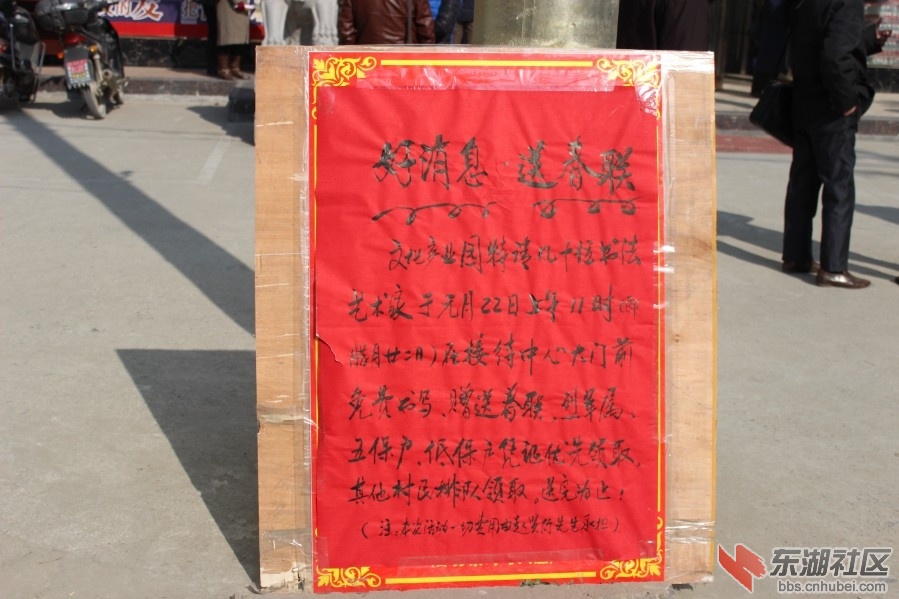 好消息 送春联
文化产业园特请几十位书法
艺术家于元月22日上午11时(即
腊月廿二日)在接待中心大门前
免费书写、赠送春联、烈军属、
五保户、低保户凭证优先领取，
其他村民排队领取，送完为止！
(注:本次活动一切费用由赵
先生承担)
东湖社区
bbs.cnhubei.com